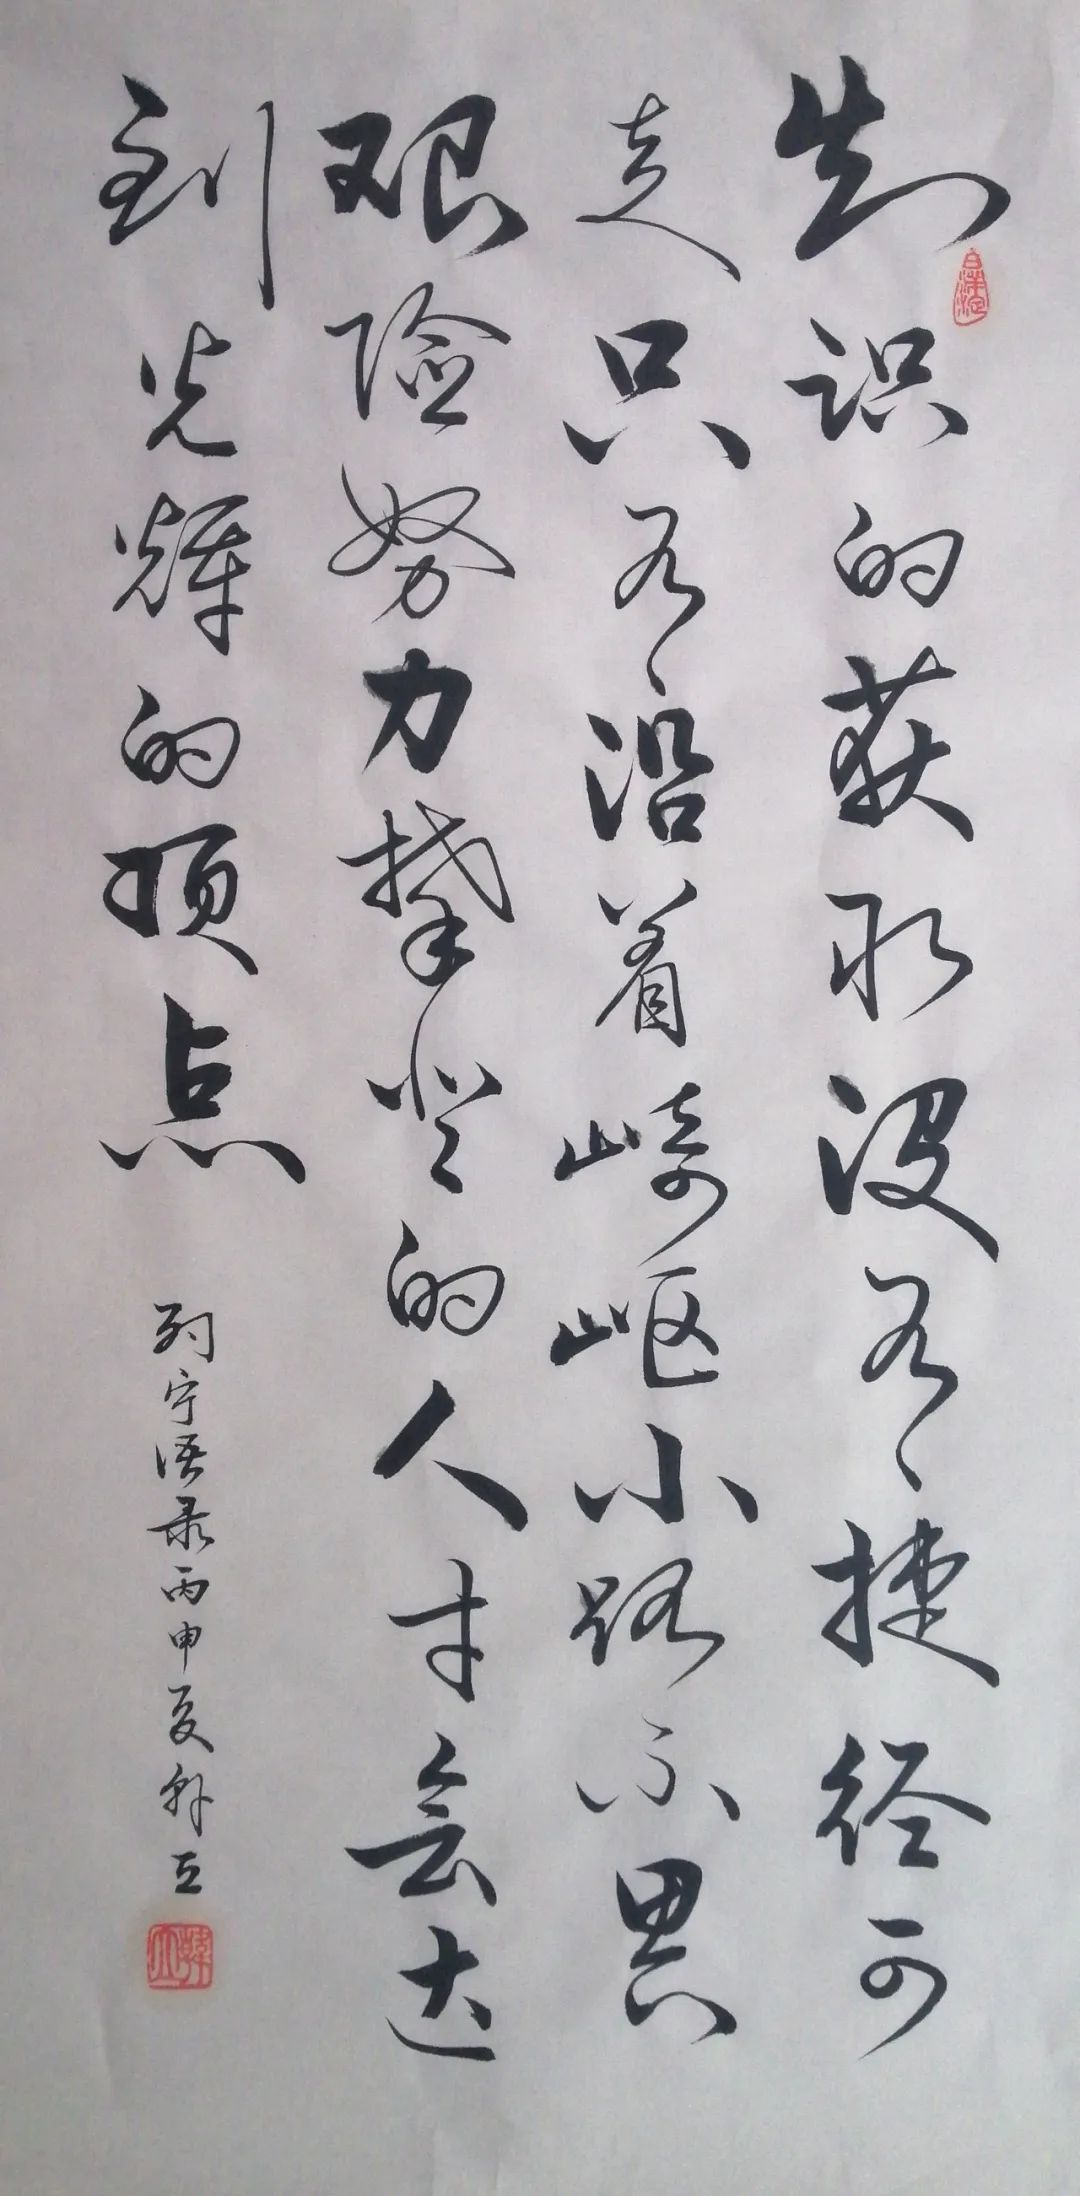 知识的获取没有捷径可
走只有沿着崎岖小路不畏
艰险努力攀登的人才会达
到光辉的顶点
列宁语录丙申夏韩立
韩立